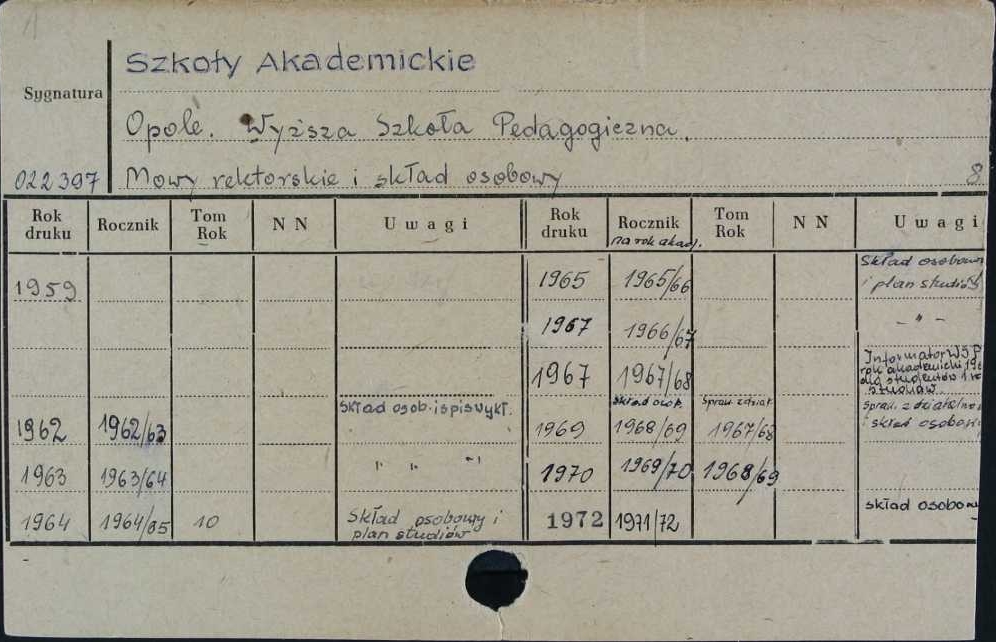 Szkoły Akademickie
Sygnatura
Opole. Wyższa Szkoła Pedagogiczna.
022397 Mowy rektorskie i skład osobowy 8
Rok druku Rocznik Tom Rok N N Uwagi Rok druku Rocznik na rok akad. Tom Rok N N Uwagi
1959 1965 1965/66 Skład osobowy i plan studiów
1967 1966/67 - " -
1967 1967/68 Informator WSP rok akademicki dla studentów
1962 1962/63 skład osob. i spis wykł. 1969 skład osob. 1968/69 spraw. z dział. 1967/68 spraw. z działalnoś i skład osobowy
1963 1963/64 " " " 1970 1969/70 1968/69
1964 1964/65 10 Skład osobowy i plan studiów 1972 1971/72 skład osobow